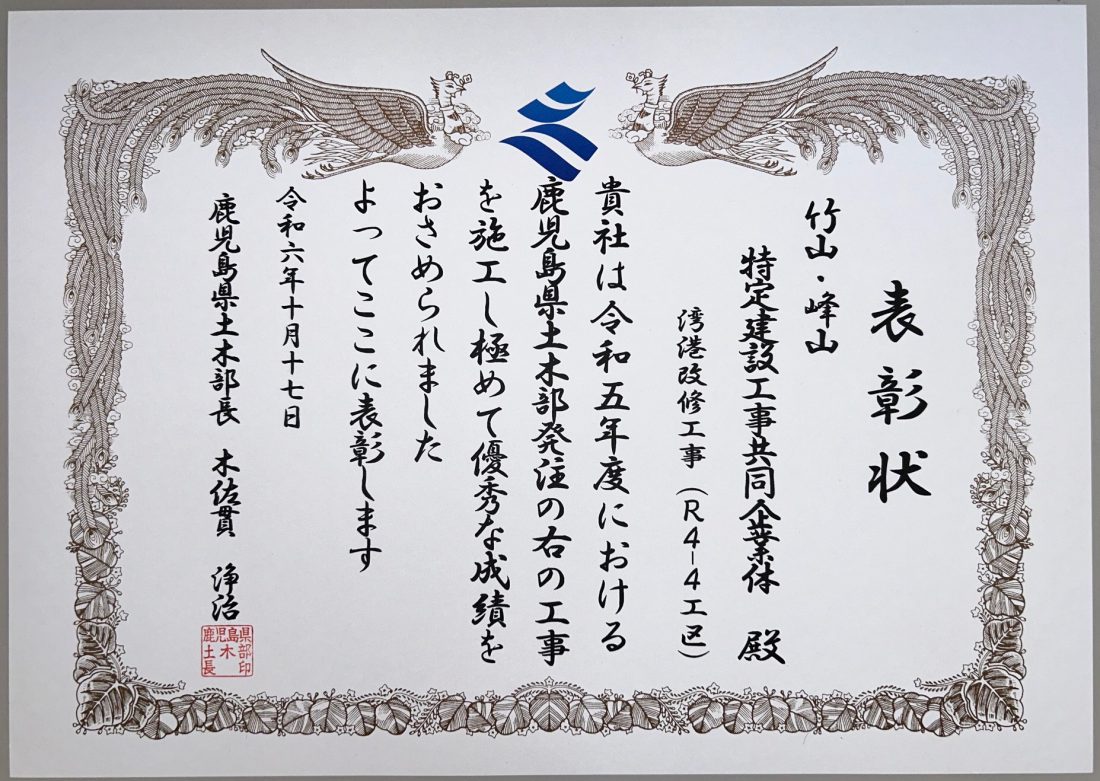 表彰状
竹山・峰山
特定建設工事共同企業体　殿
湾港改修工事（R4-4工区）
貴社は令和五年度における
鹿児島県土木部発注の右の工事
を施工し極めて優秀な成績を
おさめられました
よってここに表彰します
令和六年十月十七日
鹿児島県土木部長　木佐貫　浄治
鹿児島県土木部長印